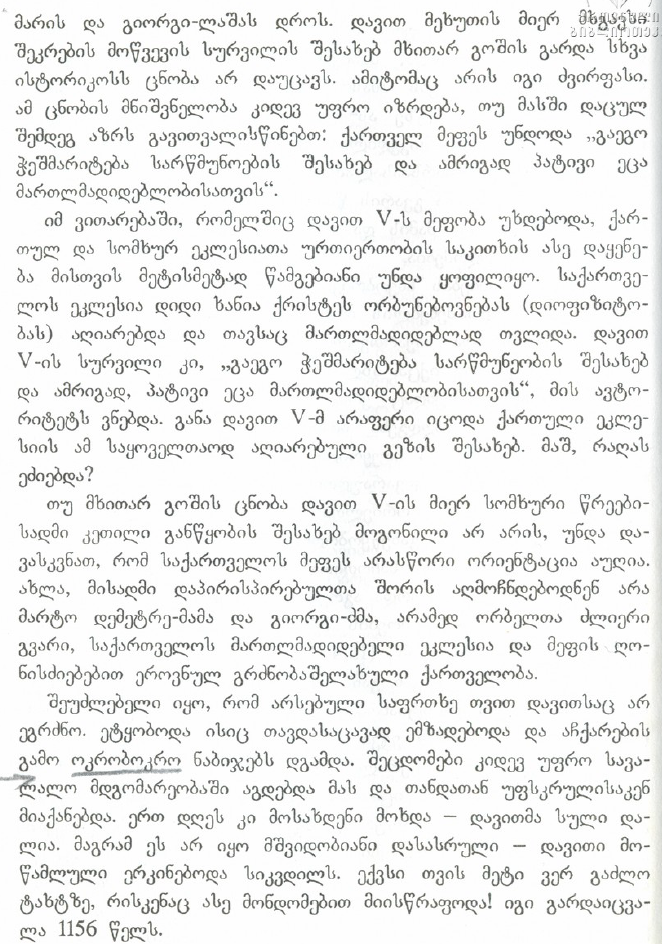 მარის და გიორგი-ლაშას დროს. დავით მეხუთის მიერ მსგავსი
შეკრების მოწვევის სურვილის შესახებ მხითარ გოშის გარდა სხვა
ისტორიკოსს ცნობა არ დაუცავს. ამიტომაც არის იგი ძვირფასი.
ამ ცნობის მნიშვნელობა კიდევ უფრო იზრდება, თუ მასში დაცულ
შემდეგ აზრს გავითვალისწინებთ: ქართველ მეფეს უნდოდა „გაეგო
ჭეშმარიტება სარწმუნოების შესახებ და ამრიგად პატივი ეცა
მართლმადიდებლობისათვის“.
იმ ვითარებაში, რომელშიც დავით V-ს მეფობა უხდებოდა, ქარ-
თულ და სომხურ ეკლესიათა ურთიერთობის საკითხის ასე დაყენე-
ბა მისთვის მეტისმეტად წამგებიანი უნდა ყოფილიყო. საქართვე-
ლოს ეკლესია დიდი ხანია ქრისტეს ორბუნებოვნებას (დიოფიზიტო-
ბას) აღიარებდა და თავსაც მართლმადიდებლად თვლიდა. დავით
V-ის სურვილი კი, „გაეგო ჭეშმარიტება სარწმუნეობის შესახებ
და ამრიგად, პატივი ეცა მართლმადიდებლობისათვის“, მის ავტო-
რიტეტს ვნებდა. განა დავით V-მ არაფერი იცოდა ქართული ეკლე-
სიის ამ საყოველთაოდ აღიარებული გეზის შესახებ. მაშ, რაღას
ეძიებდა?
თუ მხითარ გოშის ცნობა დავით V-ის მიერ სომხური წრეები-
სადმი კეთილი განწყობის შესახებ მოგონილი არ არის, უნდა და-
ვასკვნათ, რომ საქართველოს მეფეს არასწორი ორიენტაცია აუღია.
ახლა, მისადმი დაპირისპირებულთა შორის აღმოჩნდებოდნენ არა
მარტო დემეტრე-მამა და გიორგი-ძმა, არამედ ორბელთა ძლიერი
გვარი, საქართველოს მართლმადიდებელი ეკლესია და მეფის ღო-
ნისძიებებით ეროვნულ გრძნობაშელახული ქართველობა.
შეუძლებელი იყო, რომ არსებული საფრთხე თვით დავითსაც არ
ეგრძნო. ეტყობოდა ისიც თავდასაცავად ემზადებოდა და აჩქარების
გამო ოკრობოკრო ნაბიჯებს დგამდა. შეცდომები კიდევ უფრო სავა-
ლალო მდგომარეობაში აგდებდა მას და თანდათან უფსკრულისაკენ
მიაქანებდა. ერთ დღეს კი მოსახდენი მოხდა – დავითმა სული და-
ლია. მაგრამ ეს არ იყო მშვიდობიანი დასასრული – დავითი მო-
წამლული ერკინებოდა სიკვდილს. ექვსი თვის მეტი ვერ გაძლო
ტახტზე, რისკენაც ასე მონდომებით მიისწრაფოდა! იგი გარდაიცვა-
ლა 1156 წელს.